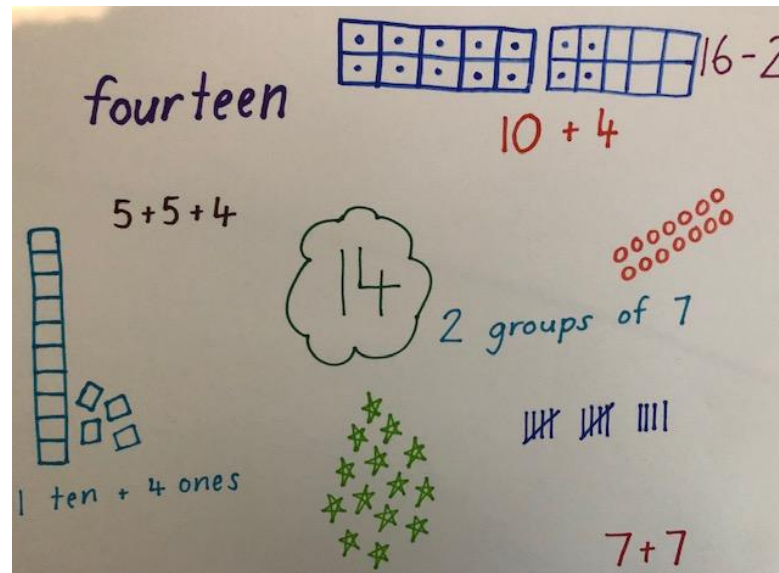 fourteen
16-2
10 + 4
5+5+4
14
2 groups of 7
1 ten + 4 ones
7+7